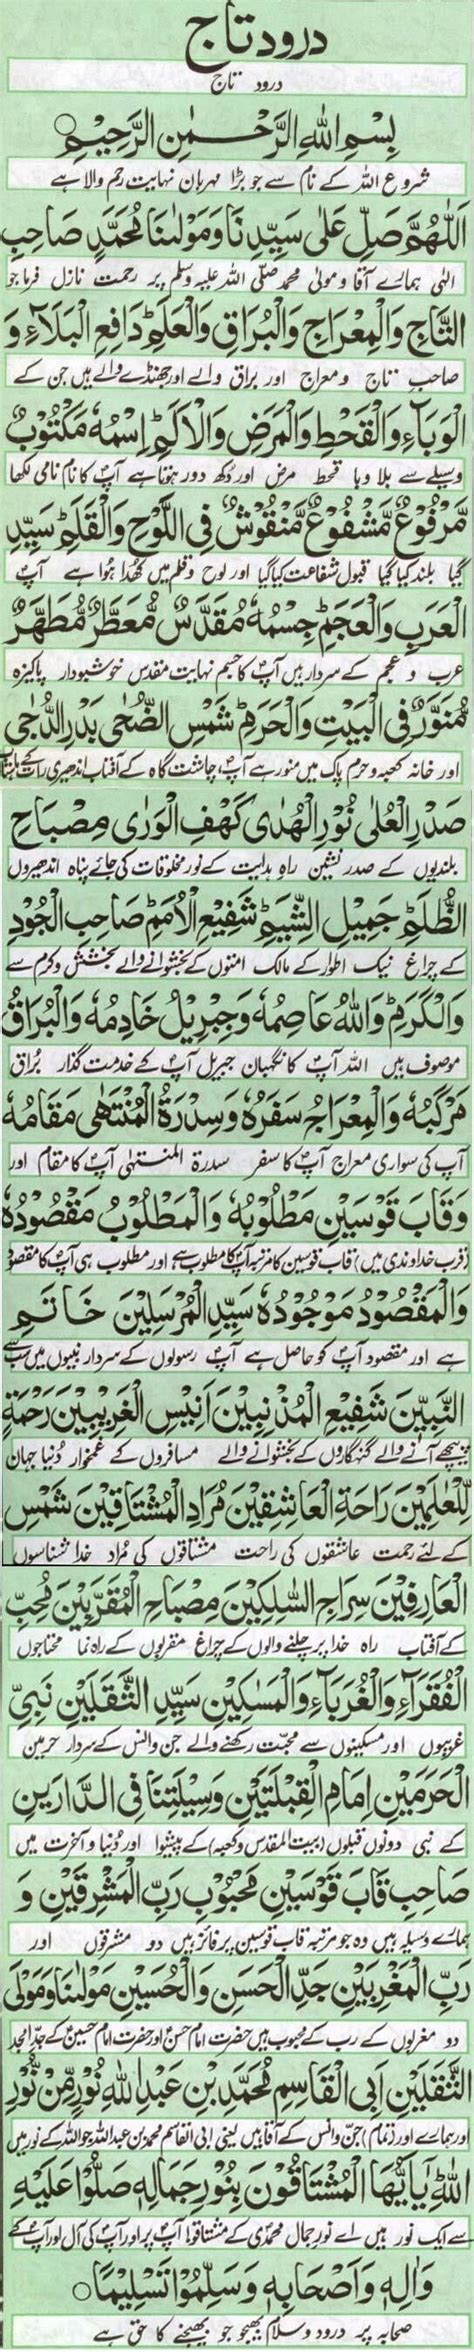 درود تاج
درود تاج
بِسْمِ اللهِ الرَّحْمٰنِ الرَّحِيْمِ
شروع اللہ کے نام سے جو بڑا مہربان نہایت رحم والا ہے
اَللّٰهُمَّ صَلِّ عَلٰى سَيِّدِنَا وَمَوْلٰىنَا مُحَمَّدٍ صَاحِبِ
الٰہی ہمارے آقا و مولیٰ محمد صلی اللہ علیہ وسلم پر رحمت نازل فرما جو
التَّاجِ وَالْمِعْرَاجِ وَالْبُرَاقِ وَالْعَلَمِ دَافِعِ الْبَلَآءِ وَ
صاحب تاج و معراج اور براق والے اور جھنڈے والے ہیں جن کے
الْوَبَآءِ وَالْقَحْطِ وَالْمَرَضِ وَالْاَلَمِ اِسْمُهٗ مَكْتُوْبٌ
وسیلے سے بلا وبا قحط مرض اور دکھ دور ہوتا ہے آپ کا نام نامی لکھا
مَّرْفُوْعٌ مَّشْفُوْعٌ مَّنْقُوْشٌ فِى اللَّوْحِ وَالْقَلَمِ سَيِّدِ
گیا بلند کیا گیا قبول شفاعت کیا گیا اور لوح و قلم میں کھدا ہوا ہے آپ
الْعَرَبِ وَالْعَجَمِ جِسْمُهٗ مُقَدَّسٌ مُّعَطَّرٌ مُّطَهَّرٌ
عرب و عجم کے سردار ہیں آپ کا جسم نہایت مقدس خوشبودار پاکیزہ
مُّنَوَّرٌ فِى الْبَيْتِ وَالْحَرَمِ شَمْسِ الضُّحٰى بَدْرِ الدُّجٰى
اور خانہ کعبہ و حرم پاک میں منور ہے آپ چاشت گاہ کے آفتاب اندھیری رات کے
صَدْرِ الْعُلٰى نُوْرِ الْهُدٰى كَهْفِ الْوَرٰى مِصْبَاحِ
بلندیوں کے صدر نشین راہ ہدایت کے نور مخلوقات کی جائے پناہ اندھیروں
الظُّلَمِ جَمِيْلِ الشِّيَمِ شَفِيْعِ الْاُمَمِ صَاحِبِ الْجُوْدِ
کے چراغ نیک اطوار کے مالک امتوں کے بخشوانے والے بخشش و کرم سے
وَالْكَرَمِ وَاللهُ عَاصِمُهٗ وَجِبْرِيْلُ خَادِمُهٗ وَالْبُرَاقُ
موصوف ہیں اللہ آپ کا نگہبان جبریل آپ کے خدمت گذار براق
مَرْكَبُهٗ وَالْمِعْرَاجُ سَفَرُهٗ وَسِدْرَةُ الْمُنْتَهٰى مَقَامُهٗ
آپ کی سواری معراج آپ کا سفر سدرة المنتہی آپ کا مقام اور
وَقَابَ قَوْسَيْنِ مَطْلُوْبُهٗ وَالْمَطْلُوْبُ مَقْصُوْدُهٗ
(قرب خداوندی میں) قاب قوسین کا مرتبہ آپ کا مطلوب ہے اور مطلوب ہی آپ کا مقصود
وَالْمَقْصُوْدُ مَوْجُوْدُهٗ سَيِّدِ الْمُرْسَلِيْنَ خَاتَمِ
ہے اور مقصود آپ کو حاصل ہے آپ رسولوں کے سردار نبیوں میں سب سے
النَّبِيِّنَ شَفِيْعِ الْمُذْنِبِيْنَ اَنِيْسِ الْغَرِيْبِيْنَ رَحْمَةٍ
پیچھے آنے والے گنہگاروں کے بخشوانے والے مسافروں کے غمخوار دنیا جہان
لِّلْعٰلَمِيْنَ رَاحَةِ الْعَاشِقِيْنَ مُرَادِ الْمُشْتَاقِيْنَ شَمْسِ
کے لئے رحمت عاشقوں کی راحت مشتاقوں کی مراد خدا شناسوں
الْعَارِفِيْنَ سِرَاجِ السّٰلِكِيْنَ مِصْبَاحِ الْمُقَرَّبِيْنَ مُحِبِّ
کے آفتاب راہ خدا پر چلنے والوں کے چراغ مقربوں کے راہ نما محتاجوں
الْفُقَرَآءِ وَالْغُرَبَآءِ وَالْمَسٰكِيْنِ سَيِّدِ الثَّقَلَيْنِ نَبِىِّ
غریبوں اور مسکینوں سے محبت رکھنے والے جن و انس کے سردار حرمین
الْحَرَمَيْنِ اِمَامِ الْقِبْلَتَيْنِ وَسِيْلَتِنَا فِى الدَّارَيْنِ
کے نبی دونوں قبلوں (بیت المقدس و کعبہ) کے پیشوا اور دنیا و آخرت میں
صَاحِبِ قَابَ قَوْسَيْنِ مَحْبُوْبِ رَبِّ الْمَشْرِقَيْنِ وَ
ہمارے وسیلہ ہیں وہ جو مرتبہ قاب قوسین پر فائز ہیں دو مشرقوں اور
رَبِّ الْمَغْرِبَيْنِ جَدِّ الْحَسَنِ وَالْحُسَيْنِ مَوْلٰىنَا وَمَوْلَى
دو مغربوں کے رب کے محبوب ہیں حضرت امام حسن اور حضرت امام حسین کے جد امجد
الثَّقَلَيْنِ اَبِى الْقَاسِمِ مُحَمَّدِ بْنِ عَبْدِ اللهِ نُوْرٍ مِّنْ نُّوْرِ
اور ہمارے اور (تمام) جن و انس کے آقا ہیں یعنی ابی القاسم محمد بن عبد اللہ جو اللہ کے نور میں
اللهِ يٰٓاَيُّهَا الْمُشْتَاقُوْنَ بِنُوْرِ جَمَالِهٖ صَلُّوْا عَلَيْهِ
سے ایک نور ہیں اے نور جمال محمدی کے مشتاقو! آپ پر اور آپ کی آل اور آپ کے
وَاٰلِهٖ وَاَصْحَابِهٖ وَسَلِّمُوْا تَسْلِيْمًا
صحابہ پر درود و سلام بھیجو جو بھیجنے کا حق ہے